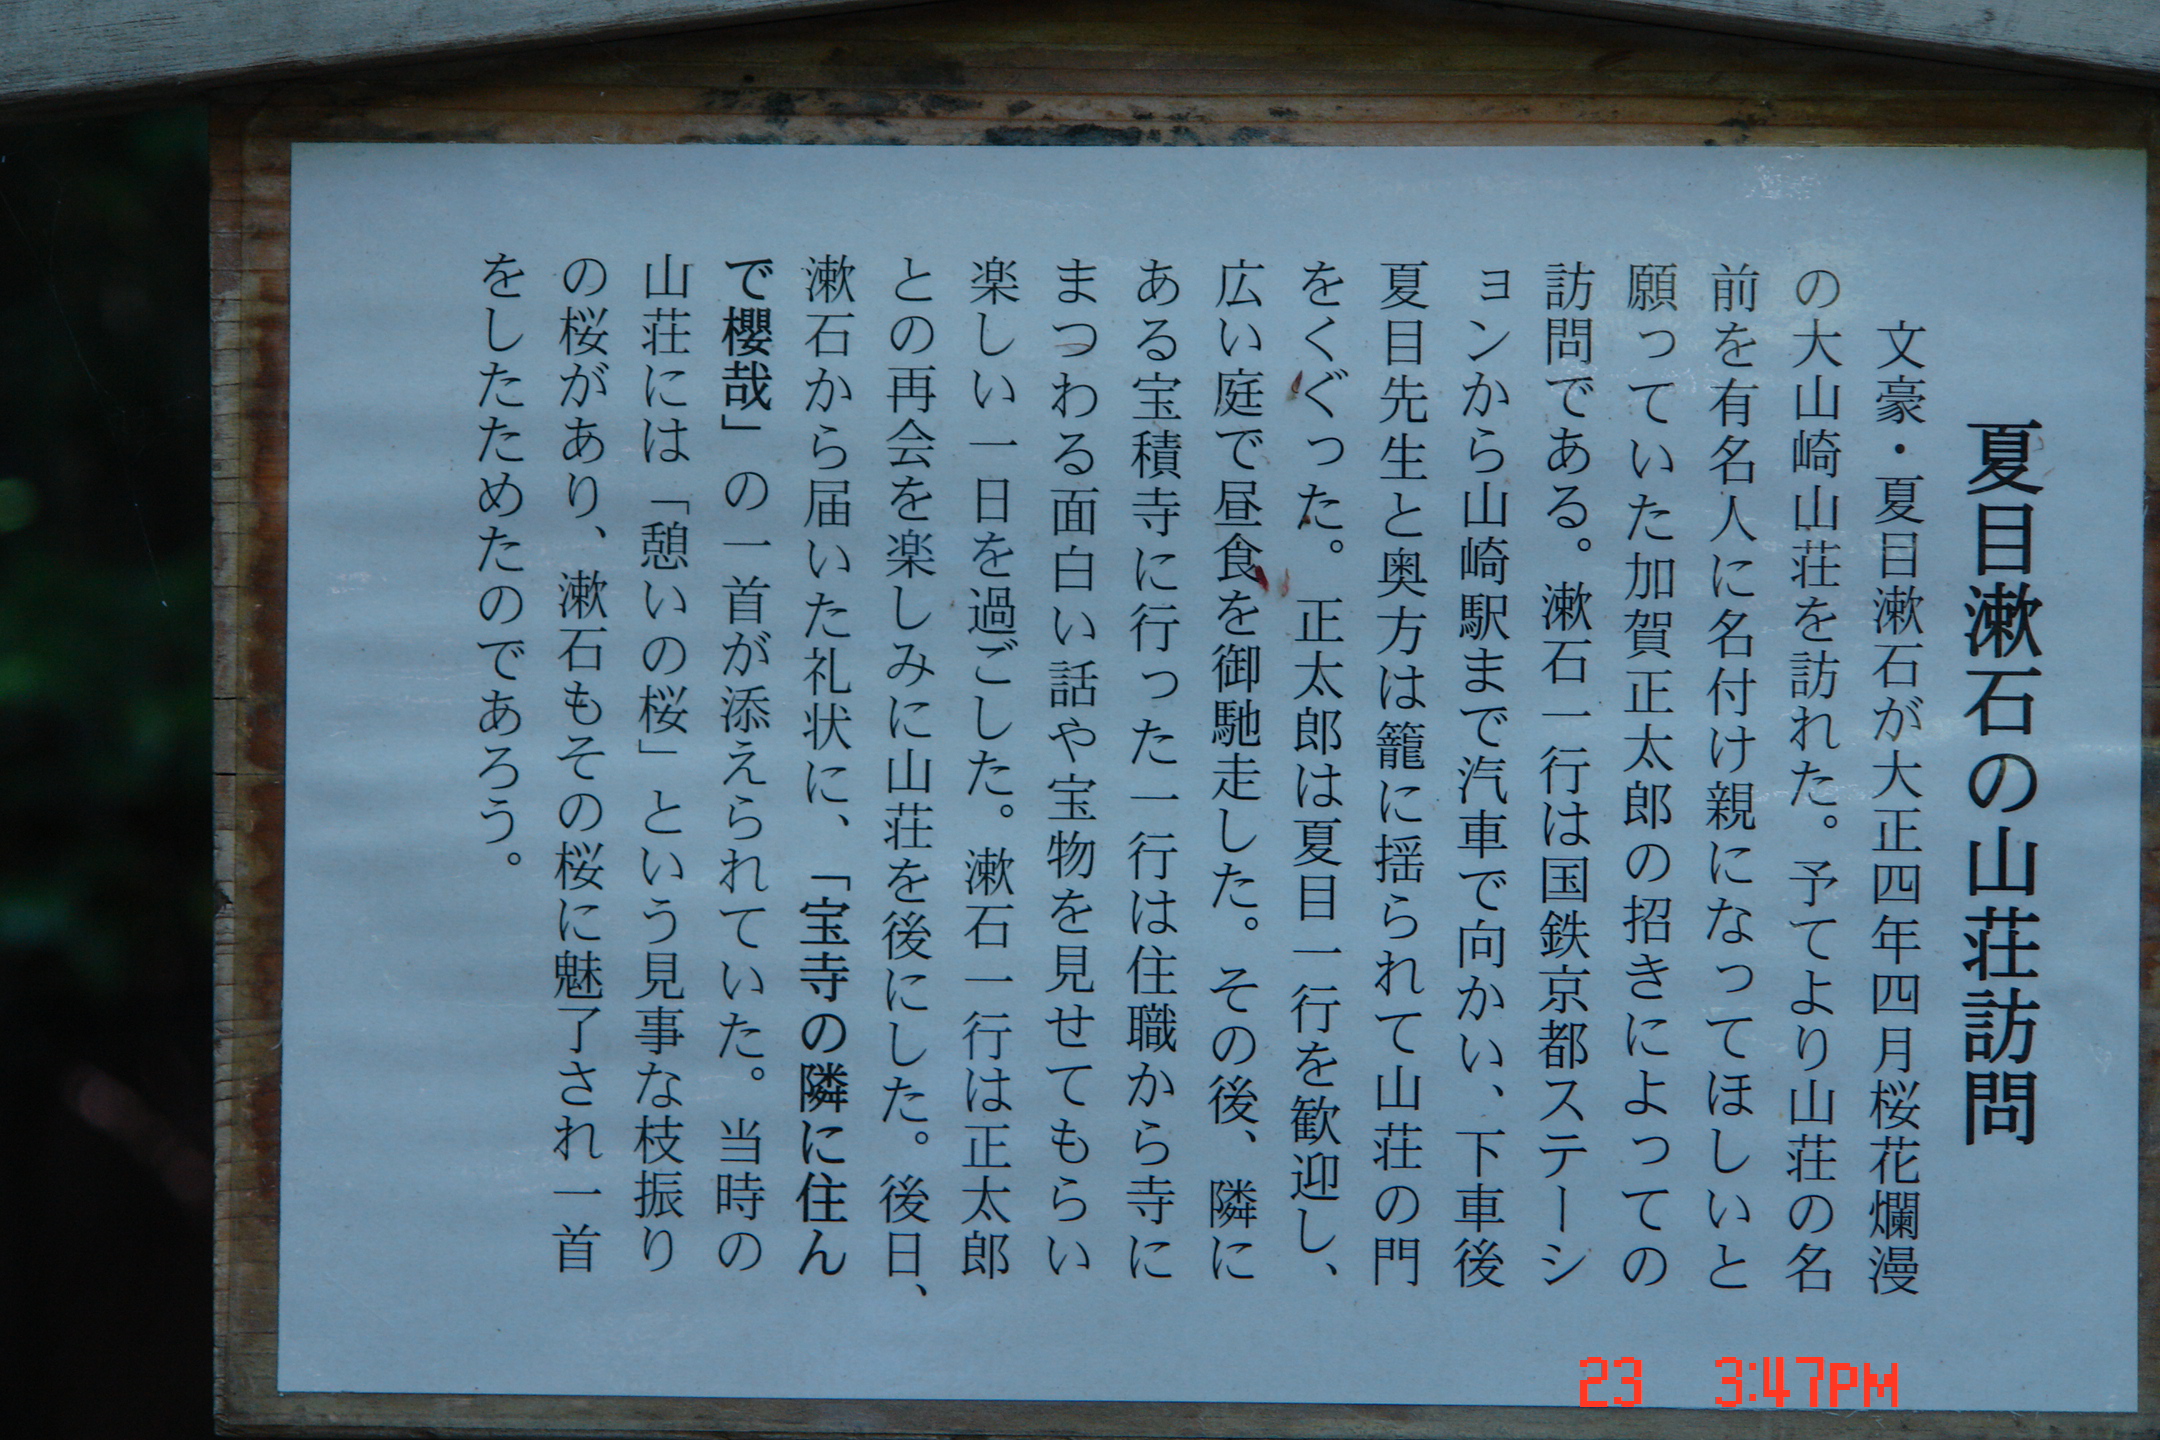 夏目漱石の山荘訪問
文豪・夏目漱石が大正四年四月桜花爛漫
の大山崎山荘を訪れた。予てより山荘の名
前を有名人に名付け親になってほしいと
願っていた加賀正太郎の招きによっての
訪問である。漱石一行は国鉄京都ステーシ
ョンから山崎駅まで汽車で向かい、下車後
夏目先生と奥方は籠に揺られて山荘の門
をくぐった。正太郎は夏目一行を歓迎し、
広い庭で昼食を御馳走した。その後、隣に
ある宝積寺に行った一行は住職から寺に
まつわる面白い話や宝物を見せてもらい
楽しい一日を過ごした。漱石一行は正太郎
との再会を楽しみに山荘を後にした。後日、
漱石から届いた礼状に、「宝寺の隣に住ん
で櫻哉」の一首が添えられていた。当時の
山荘には「憩いの桜」という見事な枝振り
の桜があり、漱石もその桜に魅了され一首
をしたためたのであろう。
23 3:47PM